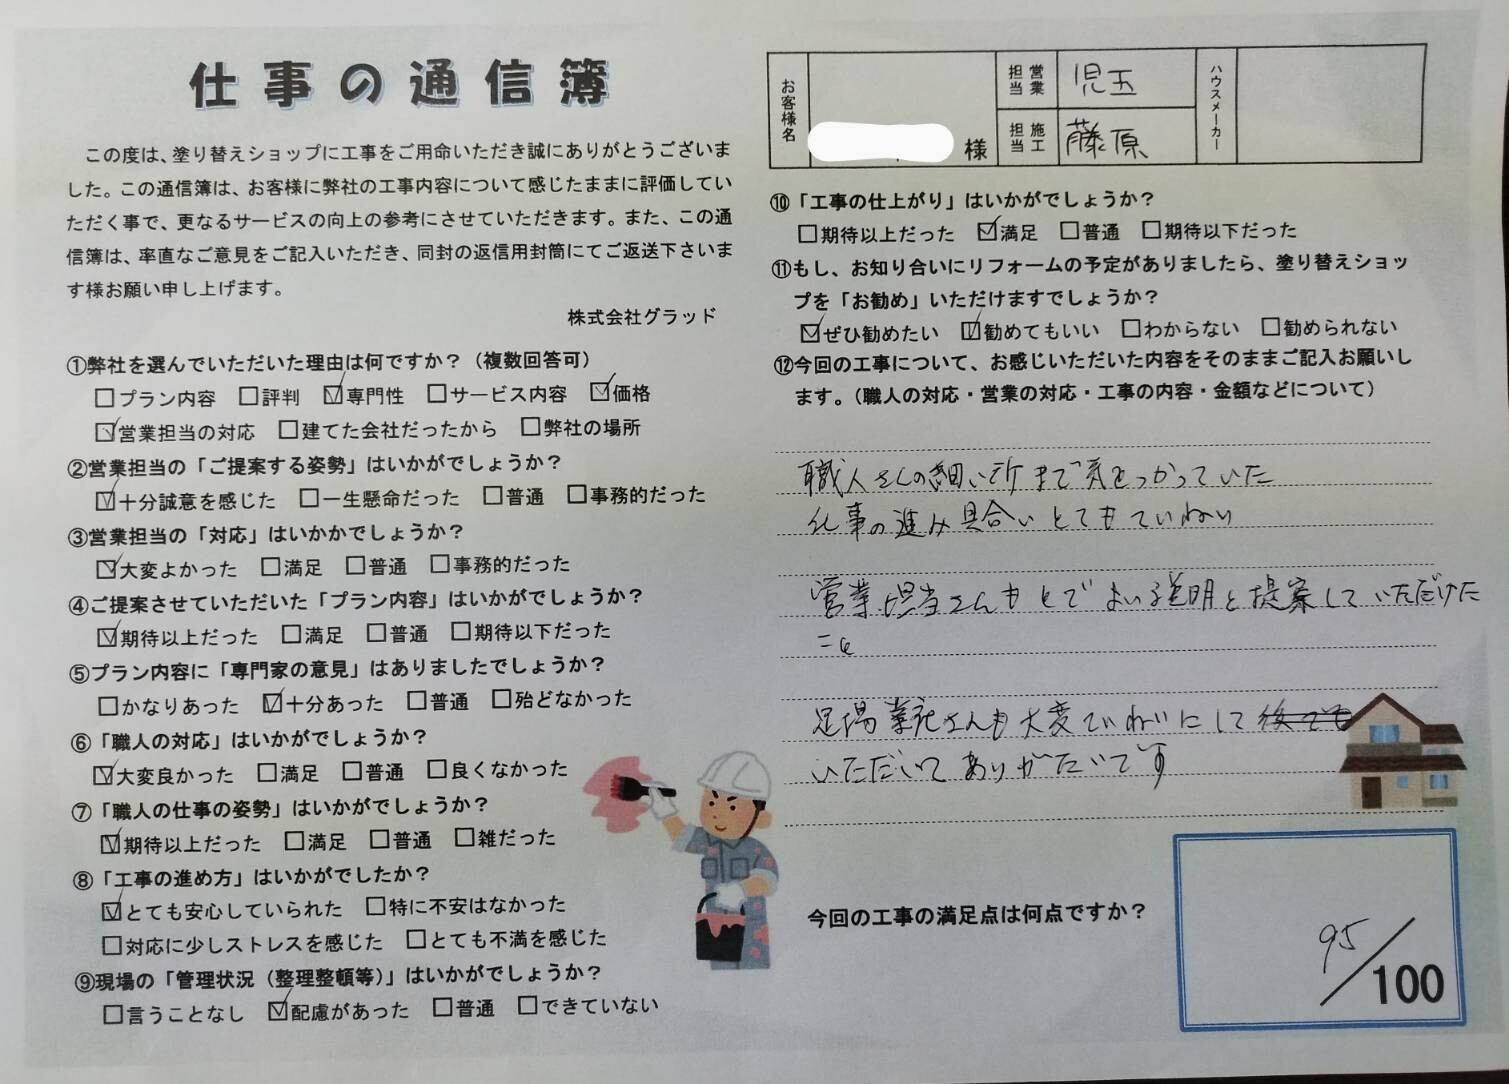 仕事の通信簿
この度は、塗り替えショップに工事をご用命いただき誠にありがとうございま
した。この通信簿は、お客様に弊社の工事内容について感じたままに評価してい
ただく事で、更なるサービスの向上の参考にさせていただきます。また、この通
信簿は、率直なご意見をご記入いただき、同封の返信用封筒にてご返送下さいま
す様お願い申し上げます。
株式会社グラッド
①弊社を選んでいただいた理由は何ですか？（複数回答可）
□プラン内容 □評判 ☑専門性 □サービス内容 ☑価格
☑営業担当の対応 □建てた会社だったから □弊社の場所
②営業担当の「ご提案する姿勢」はいかがでしょうか？
☑十分誠意を感じた □一生懸命だった □普通 □事務的だった
③営業担当の「対応」はいかかでしょうか？
☑大変よかった □満足 □普通 □事務的だった
④ご提案させていただいた「プラン内容」はいかがでしょうか？
☑期待以上だった □満足 □普通 □期待以下だった
⑤プラン内容に「専門家の意見」はありましたでしょうか？
□かなりあった ☑十分あった □普通 □殆どなかった
⑥「職人の対応」はいかがでしょうか？
☑大変良かった □満足 □普通 □良くなかった
⑦「職人の仕事の姿勢」はいかがでしょうか？
☑期待以上だった □満足 □普通 □雑だった
⑧「工事の進め方」はいかがでしたか？
☑とても安心していられた □特に不安はなかった
□対応に少しストレスを感じた □とても不満を感じた
⑨現場の「管理状況（整理整頓等）」はいかがでしょうか？
□言うことなし ☑配慮があった □普通 □できていない
お客様名 様 営業担当 児玉 ハウスメーカー
施工担当 藤原
⑩「工事の仕上がり」はいかがでしょうか？
□期待以上だった ☑満足 □普通 □期待以下だった
⑪もし、お知り合いにリフォームの予定がありましたら、塗り替えショッ
プを「お勧め」いただけますでしょうか？
☑ぜひ勧めたい ☑勧めてもいい □わからない □勧められない
⑫今回の工事について、お感じいただいた内容をそのままご記入お願いし
ます。（職人の対応・営業の対応・工事の内容・金額などについて）
職人さんの細い所まで気をつかっていた
仕事の進み具合いとてもていねい
営業担当さんもとてもよい説明と提案していただけた
こと
足場業社さんも大変ていねいにして
いただいてありがたいです
今回の工事の満足点は何点ですか？
95/100